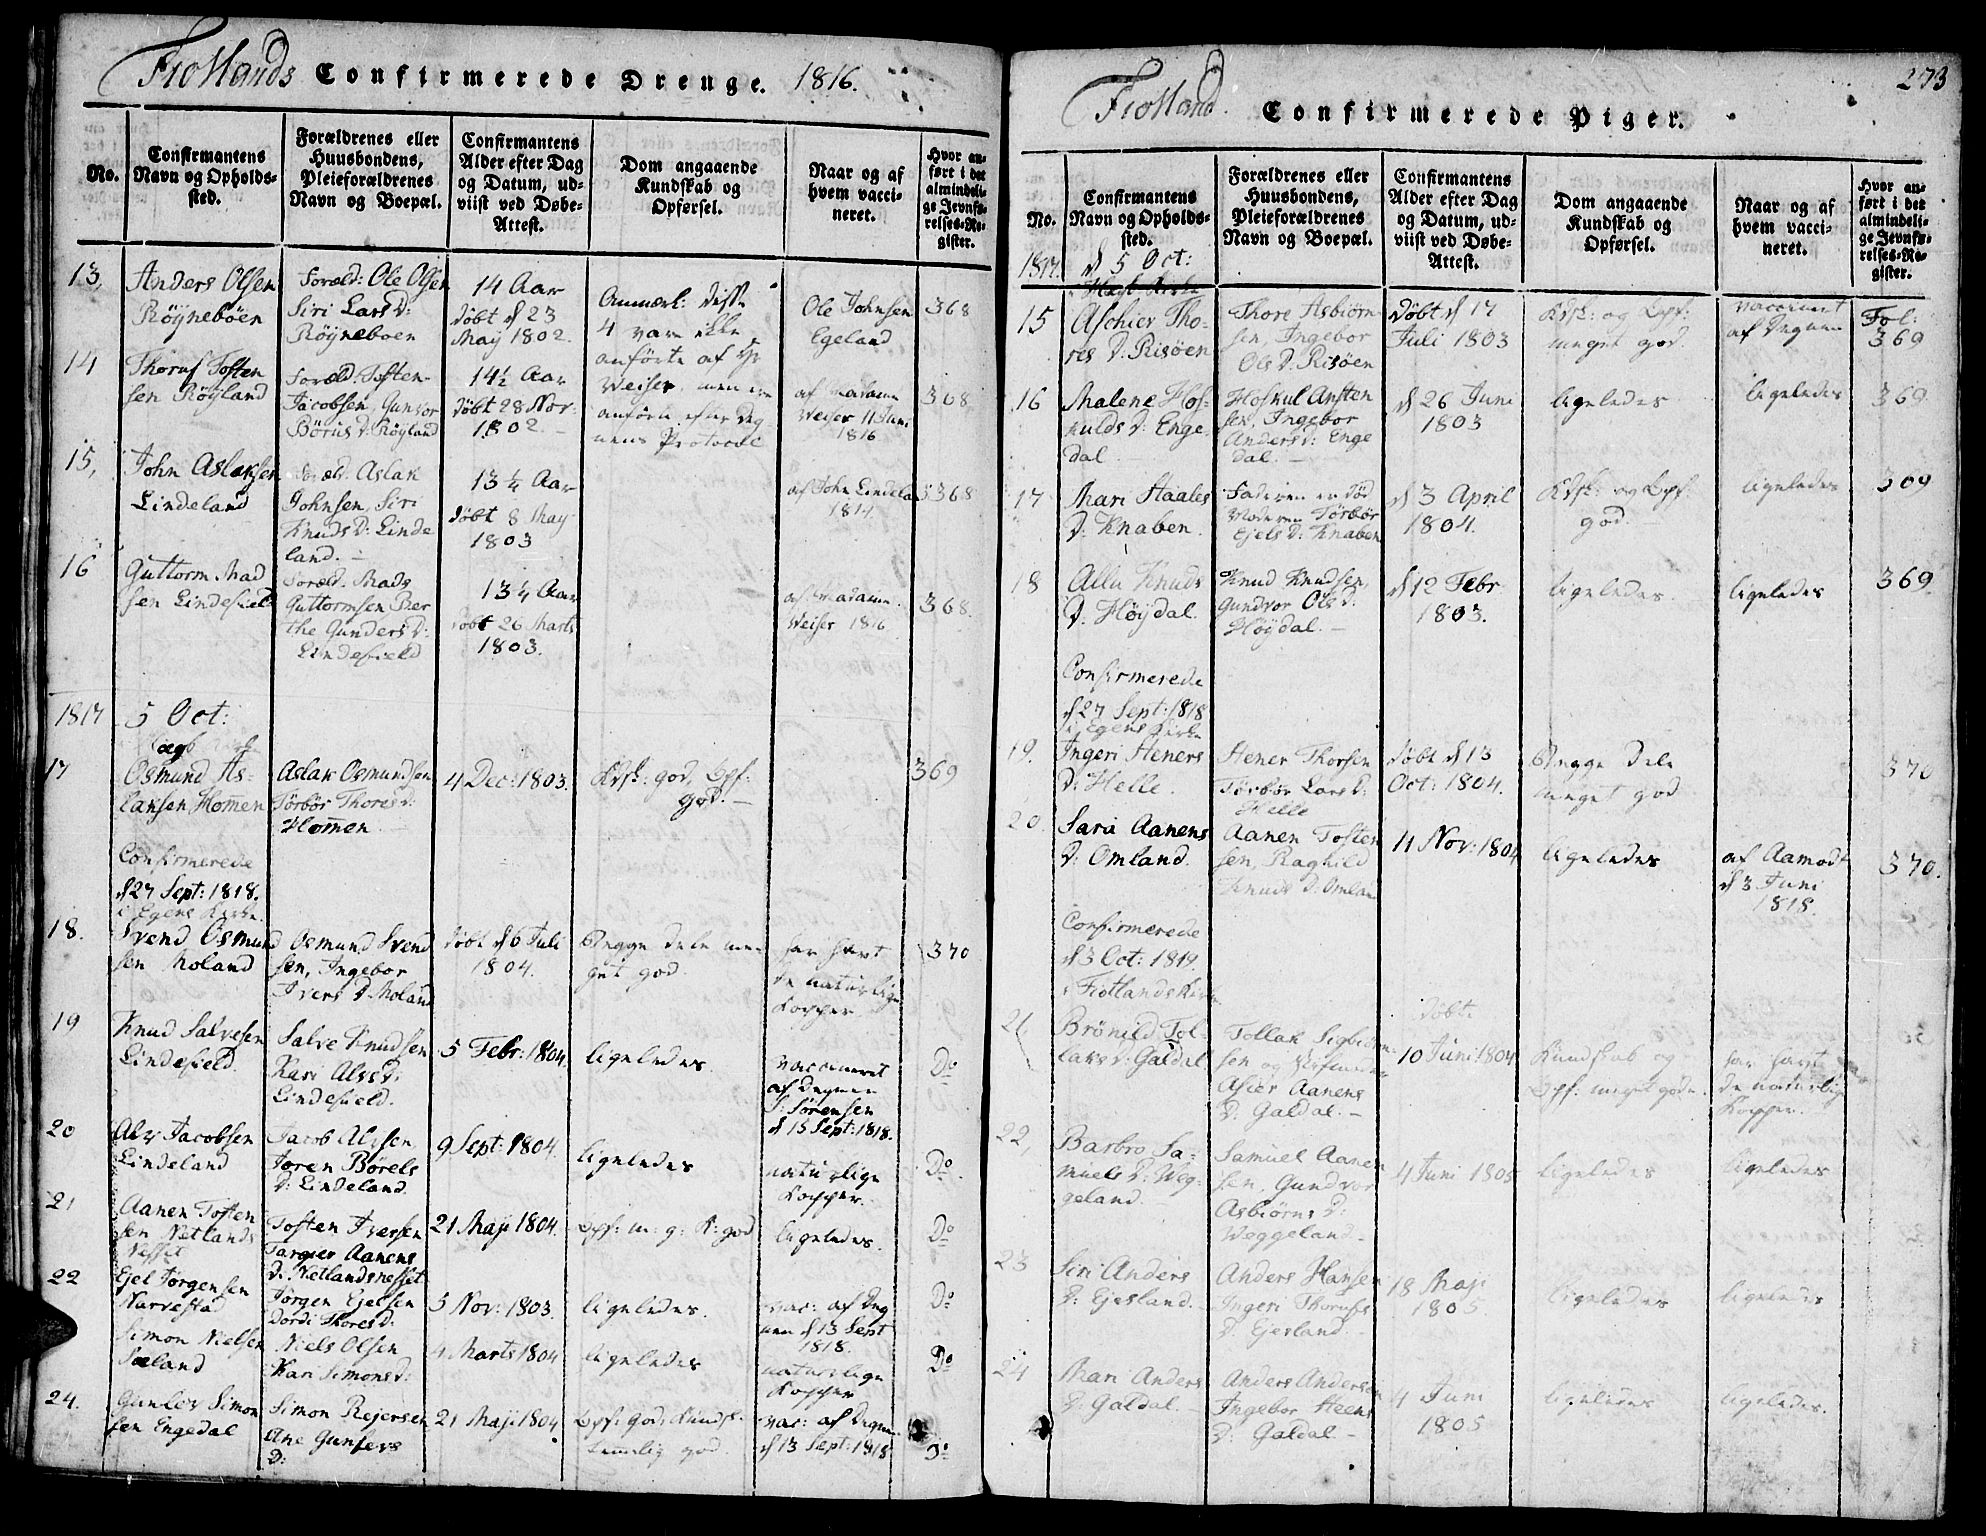 Fiotlands Confirmerede Drenge. 1816.
No.
Confirmantens
Navn og Opholds-
sted.
Forældrenes eller
Huusbondens,
Pleieforældrenes
Navn og Boepæl.
Confirmantens
Alder efter Dag
og Datum, ud-
viist ved Døbe-
Attest.
Dom angaaende
Kundskab og
Opførsel.
Naar og af
hvem vacci-
neret.
Hvor an-
ført i det
almindeli-
ge Jevnfø-
relses-Re-
gister.
13,
Anders Olsen
Röyneböen
Foræld: Ole Olsen
Siri Lars D:
Röyneboen
14 Aar
döbt d 23
May 1802.
Anmærk: disse
4 vare ikke
anförte af Hr
Weiser, men ere
anförte efter Deg
nens Protocol
Ole Johnsen
Egeland
368
14
Thorus Tosten
sen Röyland
Foræld: Tosten
Jacobsen, Gunvor
Börus D: Röyland
14½ Aar
döbt 28 Nov:
1802. –
af Madame
Weiser 11 Juni
1816
368
15,
John Aslaksen
Lindeland
Foræld. Aslak
Johnsen, Siri
Knuds D: Linde
land. –
13¼ Aar
döbt 8 May
1803
af John Lindela
1814
368
16
Guttorm Mad
sen Lindefield
Foræld. Mads
Guttormsen Ber
the Gunders D:
Lindefield
13¼ Aar
döbt 26 Marts
1803.
af Madame
Weiser 1816
368.
1817
5 Oct:
17
Osmund As-
laksen Homen
Aslak Osmundsen
Törbör Thores D:
Homen
4 Dec: 1803.
Kdsk: god, Opf:
god. –
369
Confirmerede
d 27 Sept: 1818.
i Egens Kirke.
18.
Svend Osmund
sen Moland
Osmund Svend
sen, Ingebor
Ivers D. Moland
döbt d 6 Juli
1804.
Begge dele me-
get god
har havt
de naturlige
Kopper
370
19
Knud Salvesen
Lindefield.
Salve Knudsen
Kari Alvs D:
Lindefield.
5 Febr: 1804.
ligeledes.
vaccineret
af Degnen
S: Sörensen
d 15 Sept: 1818.
Do
20
Alv Jacobsen
Lindeland
Jacob Alvsen
Joren Börels
D: Lindeland.
9 Sept: 1804.
ligeledes
naturlige
Kopper.
Do
21
Aanen Tosten
sen Netlands
nesset
Tosten Iversen
Targier Aanens
D: Netlandsnesset
21 Maji 1804.
Opf: m: g: K: god
ligeledes.
Do
22
Ejel Jörgensen
Narvestad
Jörgen Ejelsen
Dordi Thores D:
5 Nov: 1803.
ligeledes.
vac: af Deg
nen d 13 Sept
1818.
Do
Simon Nielsen
Sæland
Niels Olsen
Kari Simons D:
4 Marts 1804
ligeledes
naturlige
Kopper
Do
24.
Gunlev Simon
sen Engedal
Simon Rejersen
Ane Gunlevs
D:
21 Maji 1804
Opf: god, Kundsk:
temmelig god.
vac: af Degnen
d 13 Sept: 1818
Do
273
Fiotland. Confirmerede Piger.
No.
Confirmantens
Navn og Opholds-
sted.
Forældrenes eller
Huusbondens,
Pleieforældrenes
Navn og Boepæl.
Confirmantens
Alder efter Dag
og Datum, ud-
viist ved Døbe-
Attest.
Dom angaaende
Kundskab og
Opførsel.
Naar og af
hvem vacci-
neret.
Hvor an-
ført i det
almindeli-
ge Jevnfø-
relses-Re-
gister.
1817.
d 5 Oct:
15
Aschier Tho-
res D: Risöen
Thore Asbiörn-
sen, Ingebor
Ols D: Risöen
Döbt d 17
Juli 1803
Kdsk: og Opf:
meget god.
vaccineret
af Degnen
Fol:
369
16
Malene Hos-
kulds D: Enge
dal
Hoskul Ansten
sen, Ingebor
Anders D: Enge
dal. –
d 26 Juni
1803
ligeledes
ligeledes
369
17
Mari Staales
D: Knaben.
Faderen er död
Moderen Törbör
Ejels D: Knaben
d 3 April
1804.
Kdsk: og Opf:
god.
ligeledes
369
18
Allu Knuds
D: Höydal.
Knud Knudsen,
Gundvor Ols D:
Höydal. –
d 12 Febr
1803.
ligeledes.
ligeledes
369.
Confirmerede
d 27 Sept: 1818
i Egens Kirke
19.
Ingeri Heners
D: Helle.
Hener Thorsen
Törbör Lars D:
Helle
döbt d 13
Oct: 1804.
Begge dele
meget god
370
20.
Sara Aanens
D: Omland.
Aanen Tosten
sen, Raghild
Knuds D. Omlan
11 Nov: 1804
ligeledes
af Aamodt
d 3 Juni
1818.
370.
Confirmerede
d 3 Oct: 1819.
i Fiotlands Kirke
21
Brönild Tol-
laks D: Galdal
Tollak Sigbiörn-
sen og
Asier Aanens
D: Galdal. –
döbt
10 Juni 1804
Kundskab og
Opf: meget gode.
har havt
de naturlig
Kopper.
22
Barbro Sa-
muels D: Weg-
geland
Samuel Aanen
sen, Gundvor
Asbiörns D:
Weggeland –
4 Juni 1805
ligeledes
ligeledes
23
Siri Anders
D: Ejesland.
Anders Hansen
Ingeri Thorufs
D. Ejesland.
18 Maji
1805.
ligeledes
ligeledes
24
Mari Anders
D: Galdal.
Anders Andersen
Ingebor Heens
D: Galdal –
4 Juni
1805
ligeledes
ligeledes.